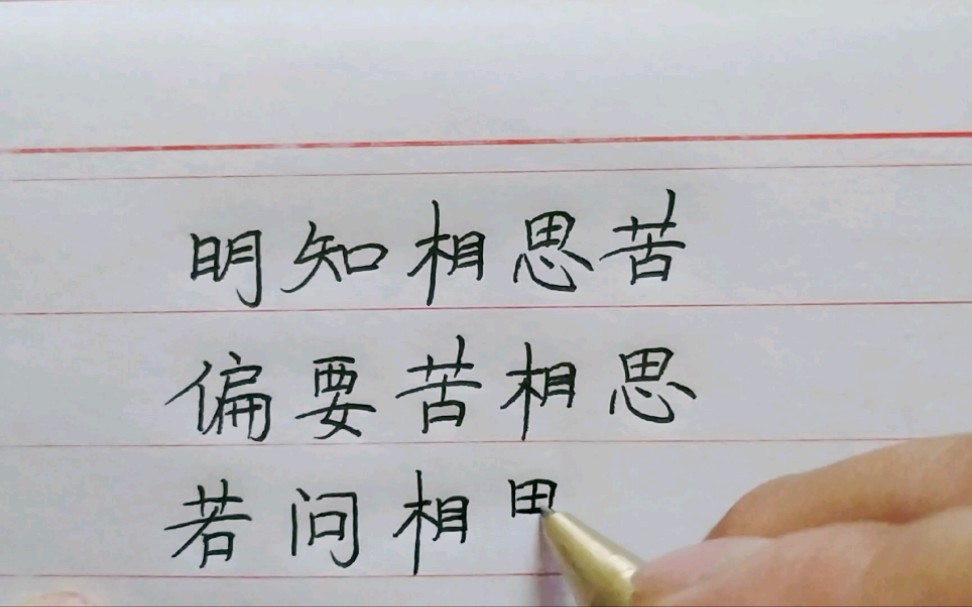 明知相思苦
偏要苦相思
若问相田